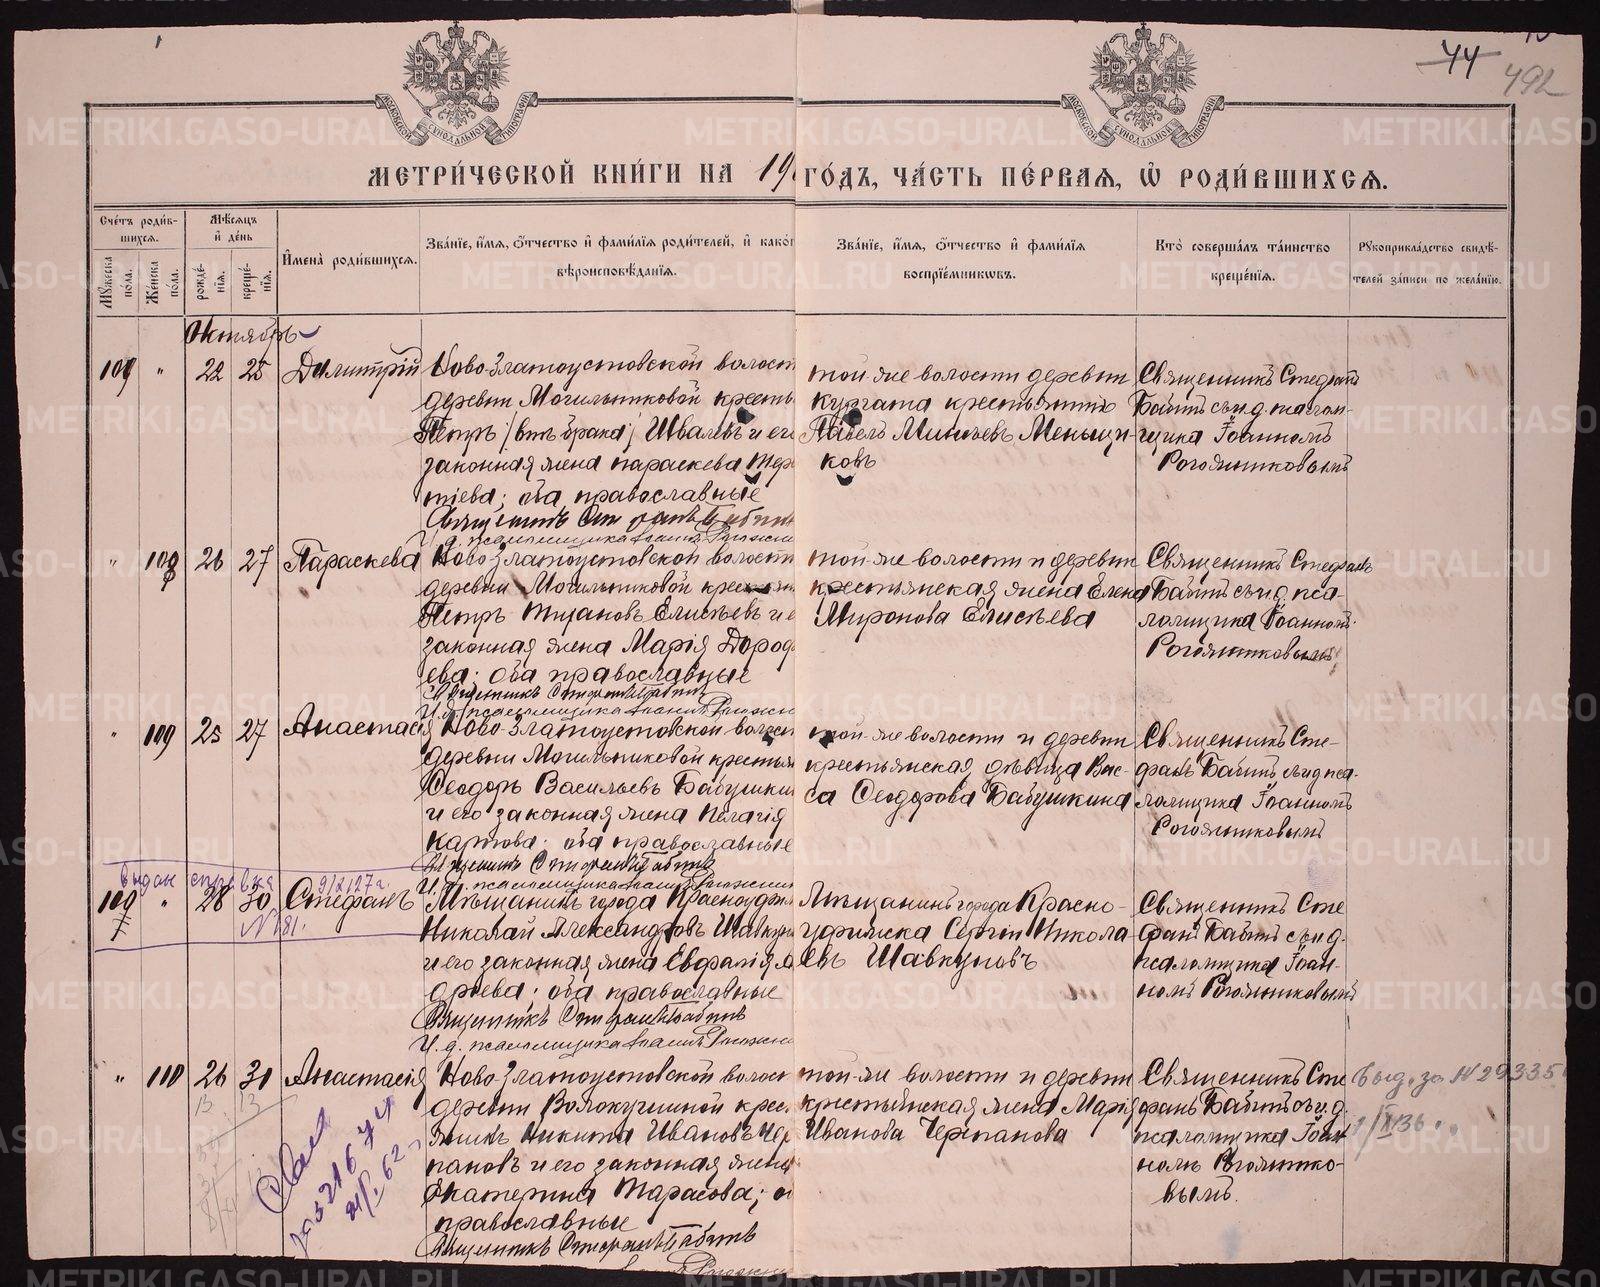 44
492
МЕТРИ́ЧЕСКОЙ КНИ́ГИ НА 19 ГО́ДЪ, ЧА́СТЬ ПЕ́РВАЯ, Ѽ РОДИ́ВШИХСЯ.
Сче́тъ роди́в-
шихся.
Мѣ́сяцъ
и҆ де́нь
Мꙋ́жеска по́ла.
Же́нска по́ла.
рожде́-
нїя.
креще́-
нїя.
И҆мена̀ роди́вшихся.
Зва́нїе, и҆́мя, ѻ҆́тчество и҆ фами́лїя роди́телей, и҆ како́г
вѣроисповѣ́данїя.
Зва́нїе, и҆́мя, ѻ҆́тчество и҆ фами́лїя
воспрїе́мникωвъ.
Кто̀ соверша́лъ та́инство
креще́нїя.
Рꙋкоприкла́дство свидѣ́-
телей за́писи по жела́нїю.
Октябрь
109 " 22 25 Димитрій
Ново-Златоустовской волост
деревни Могильниковой кресть
Петръ /внѣ брака/ Швалевъ и ег
законная жена Параскева Тер
тіева; оба православные
Священникъ Стефанъ Бабинъ
И. д. псаломщика Іоаннъ Рогожни
той-же волости деревни
Кургата крестьянинъ
Павелъ Минѣевъ Меньщи-
ковъ
Священникъ Стефанъ
Бабинъ съ и. д. псалом-
щика Іоанномъ
Рогожниковымъ
" 108 26 27 Параскева
Ново-Златоустовской волости
деревни Могильниковой крестьян
Петръ Титановъ Елисѣевъ и е
законная жена Марія Дороф
еева; оба православные
Священникъ Стефанъ Бабинъ
И. д. псаломщика Іоаннъ Рогожни
той-же волости и деревни
крестьянская жена Елена
Миронова Елисѣева
Священникъ Стефанъ
Бабинъ съ и. д. пса-
ломщика Іоанномъ
Рогожниковымъ
" 109 25 27 Анастасія
Ново-Златоустовской волост
деревни Могильниковой крестьян
Ѳеодоръ Васильевъ Бабушкин
и его законная жена Пелагія
Карпова; оба православные
Священникъ Стефанъ Бабинъ
И. д. псаломщика Іоаннъ Рогожни
той-же волости и деревни
крестьянская дѣвица Вас-
са Ѳеодорова Бабушкина
Священникъ Сте-
фанъ Бабинъ съ и д пса-
ломщика Іоанномъ
Рогожниковымъ
выдан справка 9/2 27 г.
№ 81.
" 28 30 Стефанъ
Мѣщанинъ города Красноуфим
Николай Александровъ Шавкун
и его законная жена Евфалія А
дреева; оба православные
Священникъ Стефанъ Бабинъ
И. д. псаломщика Іоаннъ Рогожни
Мѣщанинъ города Красно-
уфимска Сергій Никола-
евъ Шавкуновъ
Священникъ Сте
фанъ Бабинъ съ и д.
псаломщика Іоан-
номъ Рогожниковымъ
" 110 26 30 Анастасія
Ново-Златоустовской волост
деревни Волокушиной крес
янинъ Никита Ивановъ Чер
пановъ и его законная жена
Екатерина Тарасова; о
православные
Священникъ Стефанъ Бабинъ
той-же волости и деревни
крестьянская жена Марія
Иванова Черепанова
Священникъ Сте
фанъ Бабинъ съ и. д.
псаломщика Іоан
номъ Рогожнико-
вымъ.
выд. за № 29335